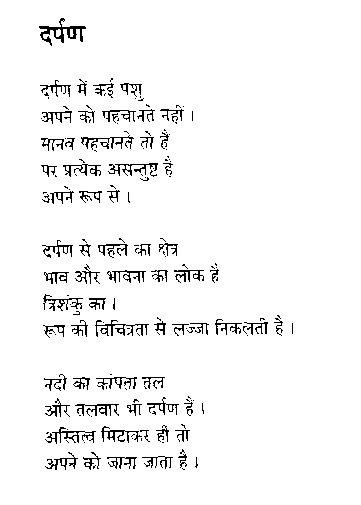 दर्पण
दर्पण में कई पशु
अपने को पहचानते नहीं ।
मानव पहचानते तो हैं
पर प्रत्येक असन्तुष्ट है
अपने रूप से ।
दर्पण से पहले का क्षेत्र
भाव और भावना का लोक है
त्रिशंकु का ।
रूप की विचित्रता से लज्जा निकलती है ।
नदी का कांपता तल
और तलवार भी दर्पण हैं ।
अस्तित्व मिटाकर ही तो
अपने को जाना जाता है ।